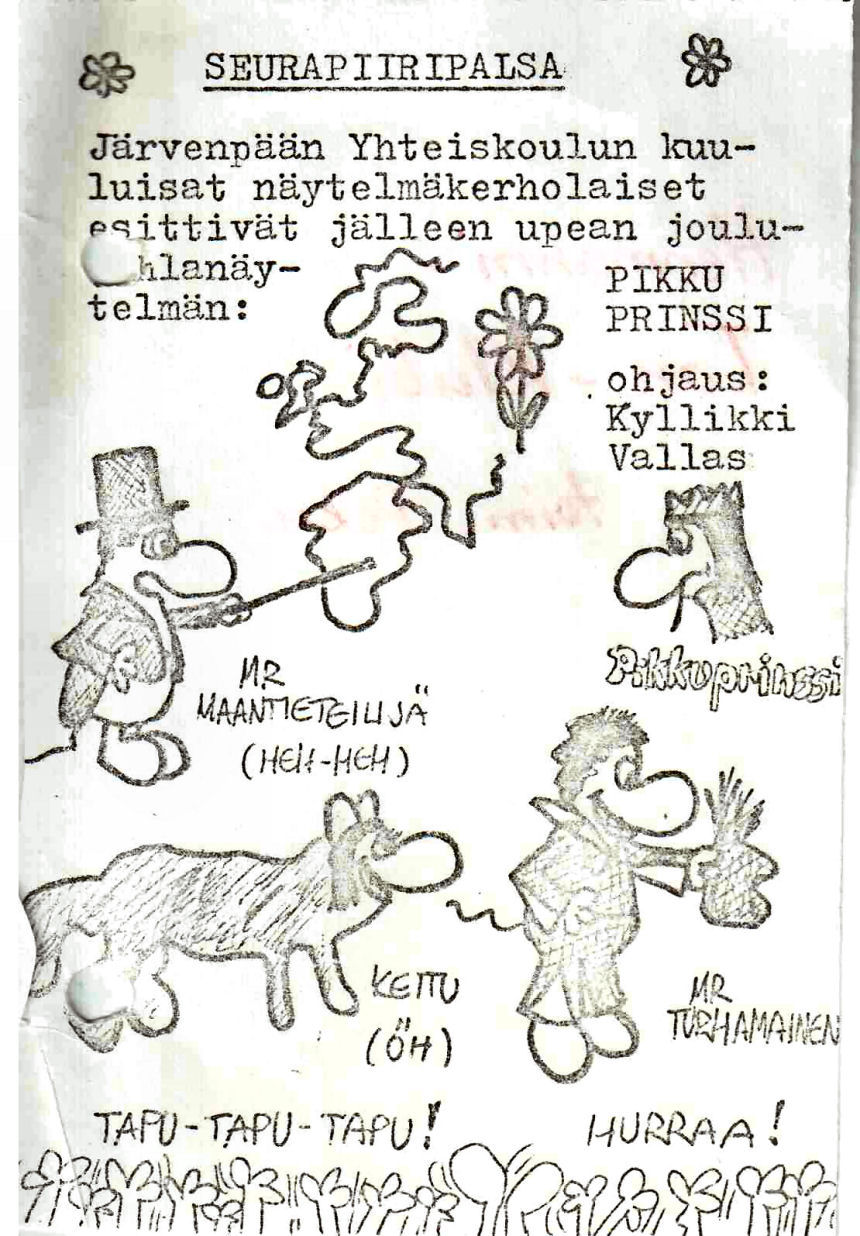 SEURAPIIRIPALSA
Järvenpään Yhteiskoulun kuu-
luisat näytelmäkerholaiset
esittivät jälleen upean joulu-
hlanäy-
telmän:
PIKKU
PRINSSI
ohjaus:
Kyllikki
Vallas
Pikkuprinssi
MR
MAANTIETEILIJÄ
(HEH-HEH)
KETTU
(ÖH)
MR
TURHAMAINEN
TAPU-TAPU-TAPU!
HURRAA!